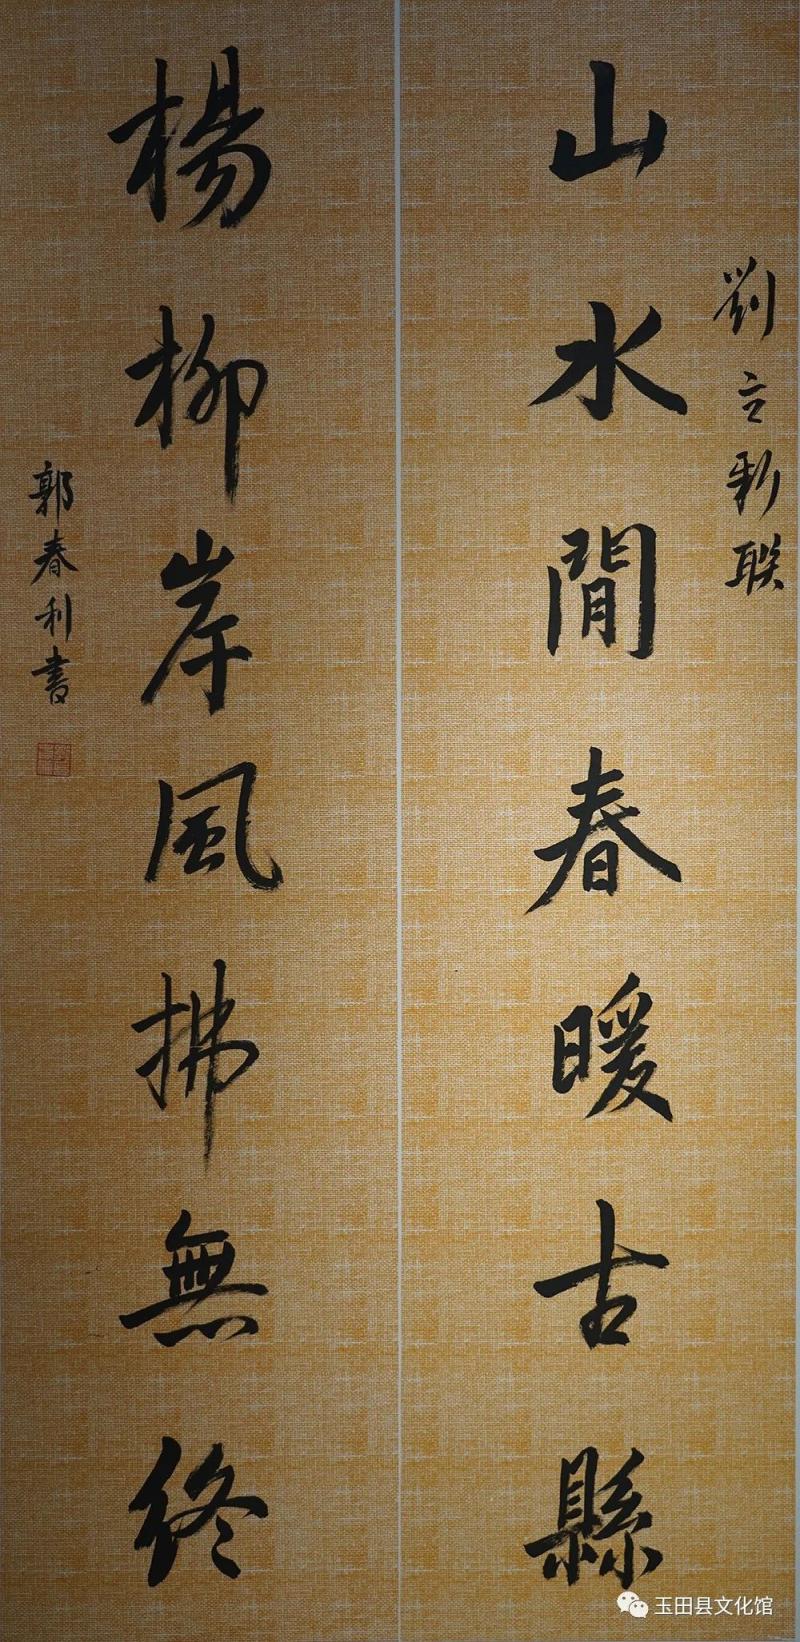 劉立新联
山水間春暖古縣
楊柳岸風拂無終
郭春利書
玉田县文化馆